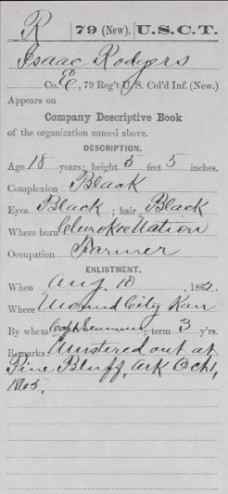 R | 79 (New). | U.S.C.T.
Isaac Rodgers
Co. E, 79 Reg't U. S. Col'd Inf. (New.)
Appears on
Company Descriptive Book
of the organization named above.
DESCRIPTION.
Age 18 years; height 5 feet 5 inches.
Complexion Black
Eyes Black; hair Black
Where born Cherokee Nation
Occupation Farmer
ENLISTMENT.
When Aug 10, 1862.
Where Mound City Kan
By whom Capt ; term 3 y'rs.
Remarks: Mustered out at
Pine Bluff, Ark Oct 1,
1865.